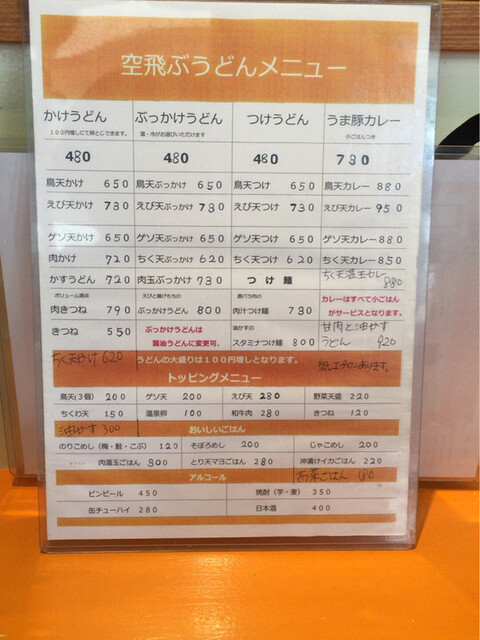 空飛ぶうどんメニュー
かけうどん ぶっかけうどん つけうどん うま豚カレー
１００円増しにて卵とじできます。 温・冷がお選びいただけます 小ごはんつき
480 480 480 730
鳥天かけ 650 鳥天ぶっかけ 650 鳥天つけ 650 鳥天カレー 880
えび天かけ 730 えび天ぶっかけ 730 えび天つけ 730 えび天カレー 950
ゲソ天かけ 650 ゲソ天ぶっかけ 650 ゲソ天つけ 650 ゲソ天カレー 880
肉かけ 720 ちく天ぶっかけ 620 ちく天つけ 620 ちく天カレー 850
かすうどん 720 肉玉ぶっかけ 730 つけ麺 ちく天温玉カレー 880
ボリューム満点 えびと鶏げもちの 豚バラ肉の カレーはすべて小ごはん
肉きつね 790 ぶっかけうどん 800 肉汁つけ麺 730 がサービスとなります。
ぶっかけうどんは 油かすの 甘肉と油かす
きつね 550 醤油うどんに変更可。 スタミナつけ麺 800 うどん 920
ちく天かけ 620 うどんの大盛りは１００円増しとなります。 紙エプロンあります。
トッピングメニュー
鳥天(３個) 200 ゲソ天 200 えび天 280 野菜天盛り 220
ちくわ天 150 温泉卵 100 和牛肉 280 きつね 120
油かす 300 おいしいごはん
のりこめし（梅・鮭・こぶ） 120 そぼろめし 200 じゃこめし 200
肉温玉ごはん 300 とり天マヨごはん 280 沖漬けイカごはん 220
アルコール 高菜ごはん 180
ビンビール 450 焼酎（芋・麦） 350
缶チューハイ 280 日本酒 400